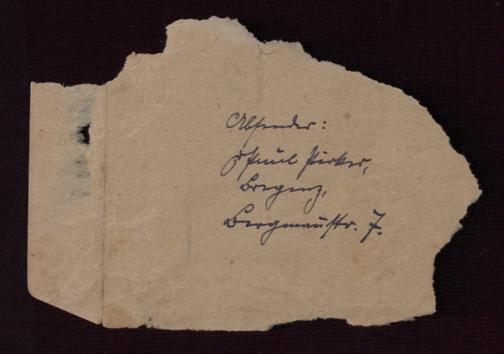 Absender:
Paul Pirker,
Bregenz,
Bergmannstr. 7.